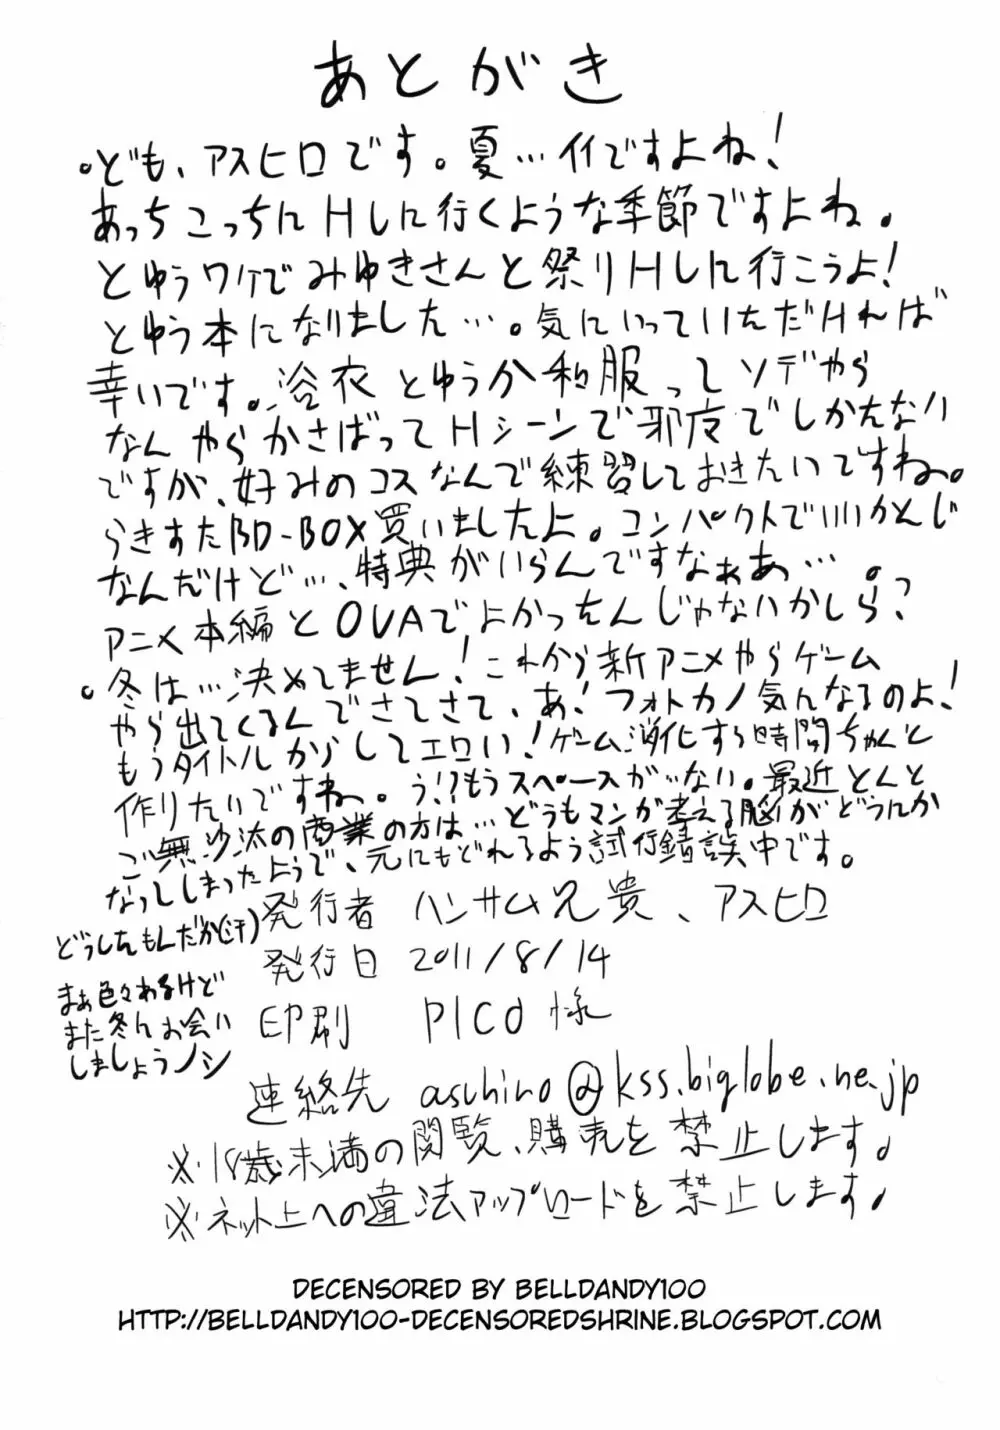 あとがき
。ども、アスヒロです。夏…イイですよね!
あっちこっちにHしに行くような季節ですよね。
とゆうワケでみゆきさんと祭りHしに行こうよ!
とゆう本になりました…。気にいっていただければ
幸いです。浴衣とゆうか和服ってソデやら
なんやらかさばってHシーンで邪魔でしかたない
ですが、好みのコスなんで練習しておきたいですね。
らきすたBD-BOX買いましたよ。コンパクトでいいかんじ
なんだけど…、特典がいらんですなぁあ…。
アニメ本編とOVAでよかったんじゃないかしら?
。冬は…決めてません!これから新アニメやらゲーム
やら出てくるんでさてさて、あ!フォトカノ気んなるのよ!
もうタイトルからしてエロい!ゲーム消化する時間ちゃんと
作りたいですね。う!?もうスペースが…ない。最近とんと
ご無沙汰の商業の方は…どうもマンガ考える脳がどうにか
なってしまったようで、元にもどれるよう試行錯誤中です。
どうしたもんだか(汗)
まぁ色々あるけど
また冬にお会い
しましょうノシ
発行者 ハンサム兄貴、アスヒロ
発行日 2011/8/14
印刷 PICO様
連絡先 aschiro@kss.biglobe.ne.jp
※18歳未満の閲覧、購売を禁止します。
※ネット上への違法アップロードを禁止します。
DECENSORED BY BELLDANDY100
HTTP://BELLDANDY100-DECENSOREDSHRINE.BLOGSPOT.COM